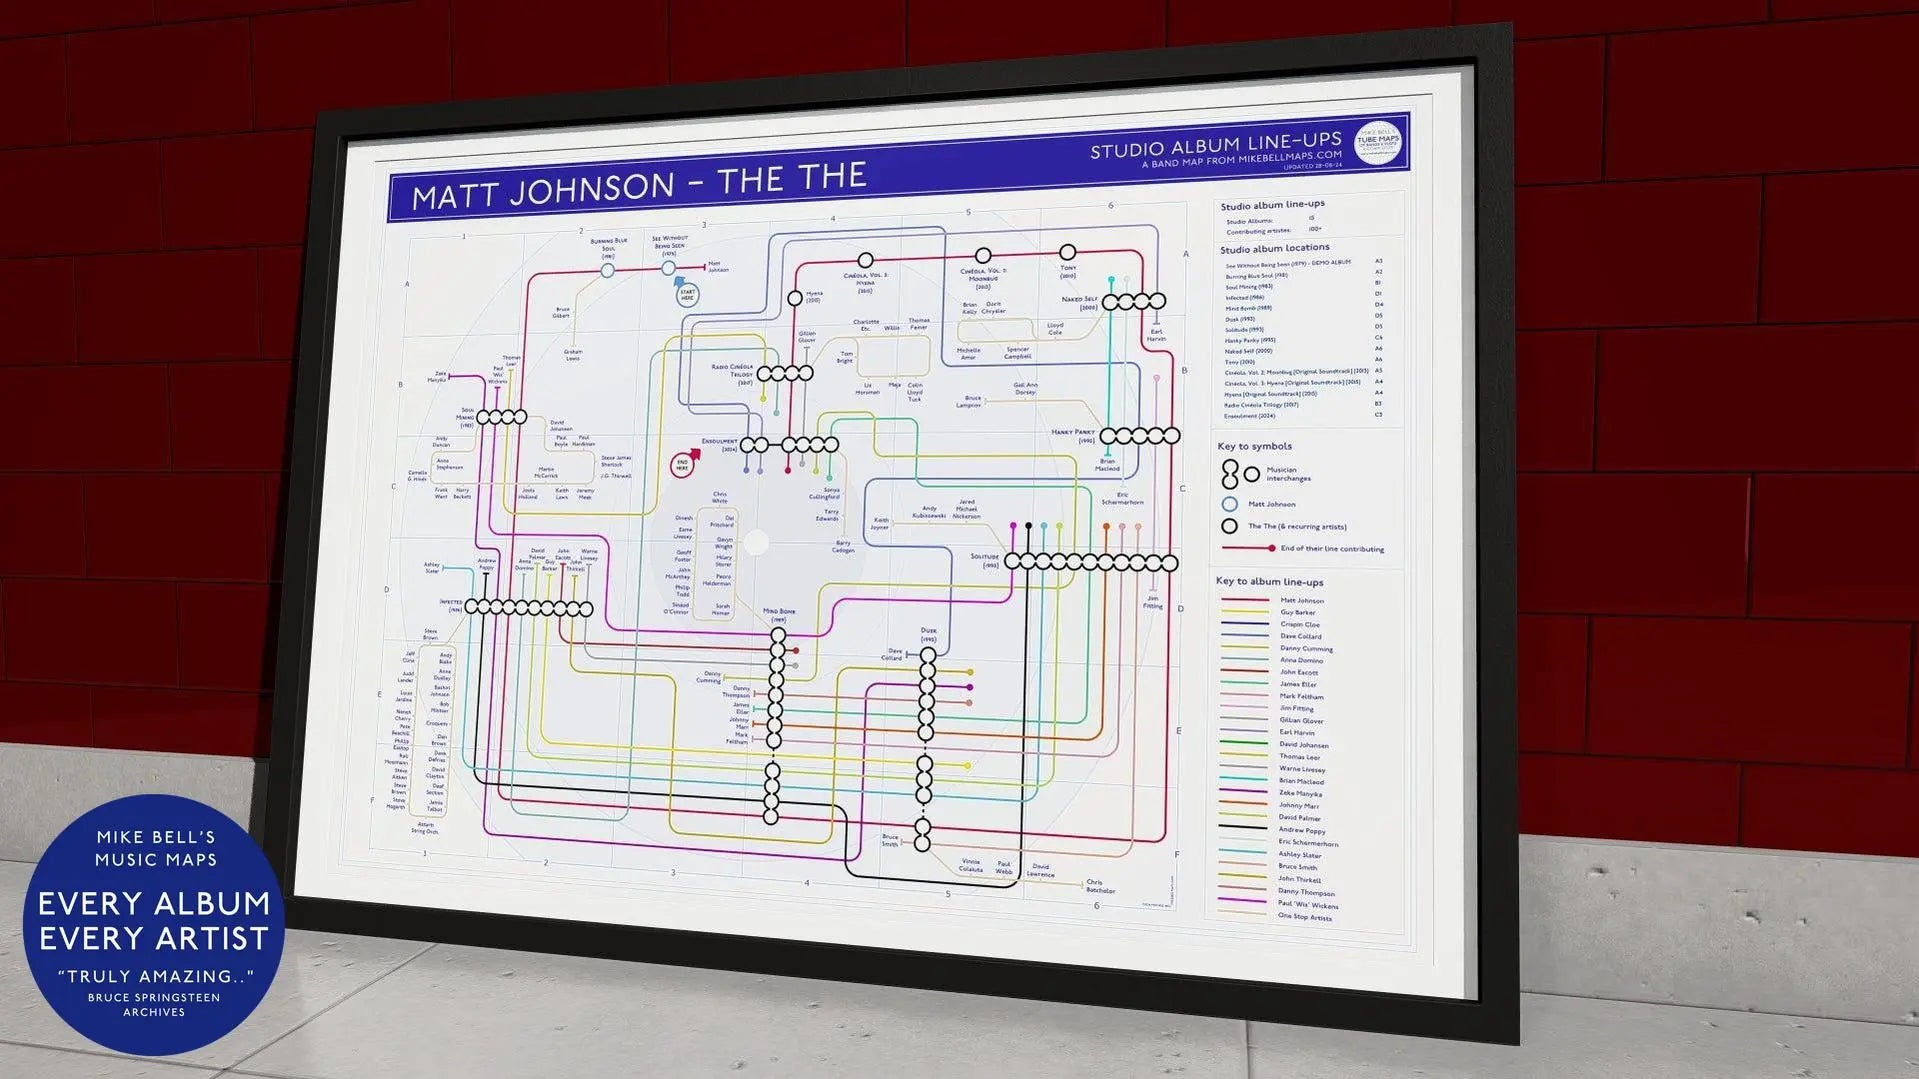 MATT JOHNSON - THE THE
STUDIO ALBUM LINE-UPS
A BAND MAP FROM MIKEBELLMAPS.COM
UPDATED 28-06-24
MIKE BELL'S
TUBE MAPS
1
2
3
4
5
6
A
B
C
D
E
F
BURNING BLUE
SOUL
(1981)
SEE WITHOUT
BEING SEEN
(1979)
Matt
Johnson
START
HERE
Bruce
Gilbert
Graham
Lewis
CINÉOLA, VOL. 3:
HYENA
(2015)
CINÉOLA, VOL. 2:
MOONBUG
(2013)
TONY
(2010)
Hyena
(2015)
NAKED SELF
(2000)
Earl
Harvin
Brian
Kelly
Dorit
Chrysler
Lloyd
Cole
Michelle
Amar
Spencer
Campbell
Gillian
Glover
Charlotte
Etc.
Willie
Thomas
Feiner
Tom
Bright
Liz
Horsman
Meja
Colin
Lloyd
Tuck
RADIO CINÉOLA
TRILOGY
(2017)
Zeke
Manyika
Paul
'Wix'
Wickens
Thomas
Leer
SOUL
MINING
(1983)
David
Johansen
Paul
Boyle
Paul
Hardiman
Steve James
Sherlock
J.G. Thirwell
Martin
McCarrick
Jools
Holland
Keith
Laws
Jeremy
Meek
Andy
Duncan
Anne
Stephenson
Camelle
G. Hinds
Frank
Want
Harry
Beckett
ENSOULMENT
(2024)
END
HERE
Sonya
Cullingford
Terry
Edwards
Barry
Cadogan
Gail Ann
Dorsey
Bruce
Lampcov
HANKY PANKY
(1995)
Brian
Macleod
Eric
Schermerhorn
Keith
Joyner
Andy
Kubiszewski
Jared
Michael
Nickerson
SOLITUDE
(1993)
Jim
Fitting
Chris
White
Dinesh
Eame
Livesey
Geoff
Foster
John
McArthey
Philip
Todd
Sinéad
O'Connor
Dai
Pritchard
Gavyn
Wright
Hilary
Storer
Pedro
Haldemann
Sarah
Homer
Ashley
Slater
Andrew
Poppy
Anna
Domino
David
Palmer
Guy
Barker
John
Eacott
John
Thirkell
Warne
Livesey
INFECTED
(1986)
Steve
Brown
Andy
Blake
Anne
Dudley
Bashiri
Johnson
Croquets
Dan
Brown
David
Clayton
Deaf
Section
Jamie
Talbot
Louis
Jardine
Neneh
Cherry
Steve
Hogarth
Astarti
String Orch.
MIND BOMB
(1989)
Danny
Cumming
Danny
Thompson
James
Eller
Johnny
Marr
Mark
Feltham
DUSK
(1993)
Dave
Collard
Bruce
Smith
Vinnie
Colaiuta
Paul
Webb
David
Lawrence
Chris
Batchelor
Studio album line-ups
Studio Albums: 15
Contributing artistes: 100+
Studio album locations
See Without Being Seen (1979) - DEMO ALBUM A3
Burning Blue Soul (1981) A2
Soul Mining (1983) B1
Infected (1986) D1
Mind Bomb (1989) D4
Dusk (1993) D5
Solitude (1993) D5
Hanky Panky (1995) C6
Naked Self (2000) A6
Tony (2010) A6
Cinéola, Vol. 2: Moonbug [Original Soundtrack] (2013) A5
Cinéola, Vol. 3: Hyena [Original Soundtrack] (2015) A4
Hyena [Original Soundtrack] (2015) A4
Radio Cinéola Trilogy (2017) B3
Ensoulment (2024) C3
Key to symbols
Musician
interchanges
Matt Johnson
The The (& recurring artists)
End of their line contributing
Key to album line-ups
Matt Johnson
Guy Barker
Crispin Cloe
Dave Collard
Danny Cumming
Anna Domino
John Eacott
James Eller
Mark Feltham
Jim Fitting
Gillian Glover
Earl Harvin
David Johansen
Thomas Leer
Warne Livesey
Brian Macleod
Zeke Manyika
Johnny Marr
David Palmer
Andrew Poppy
Eric Schermerhorn
Ashley Slater
Bruce Smith
John Thirkell
Danny Thompson
Paul 'Wix' Wickens
One Stop Artists
MIKE BELL'S
MUSIC MAPS
EVERY ALBUM
EVERY ARTIST
"TRULY AMAZING.."
BRUCE SPRINGSTEEN
ARCHIVES